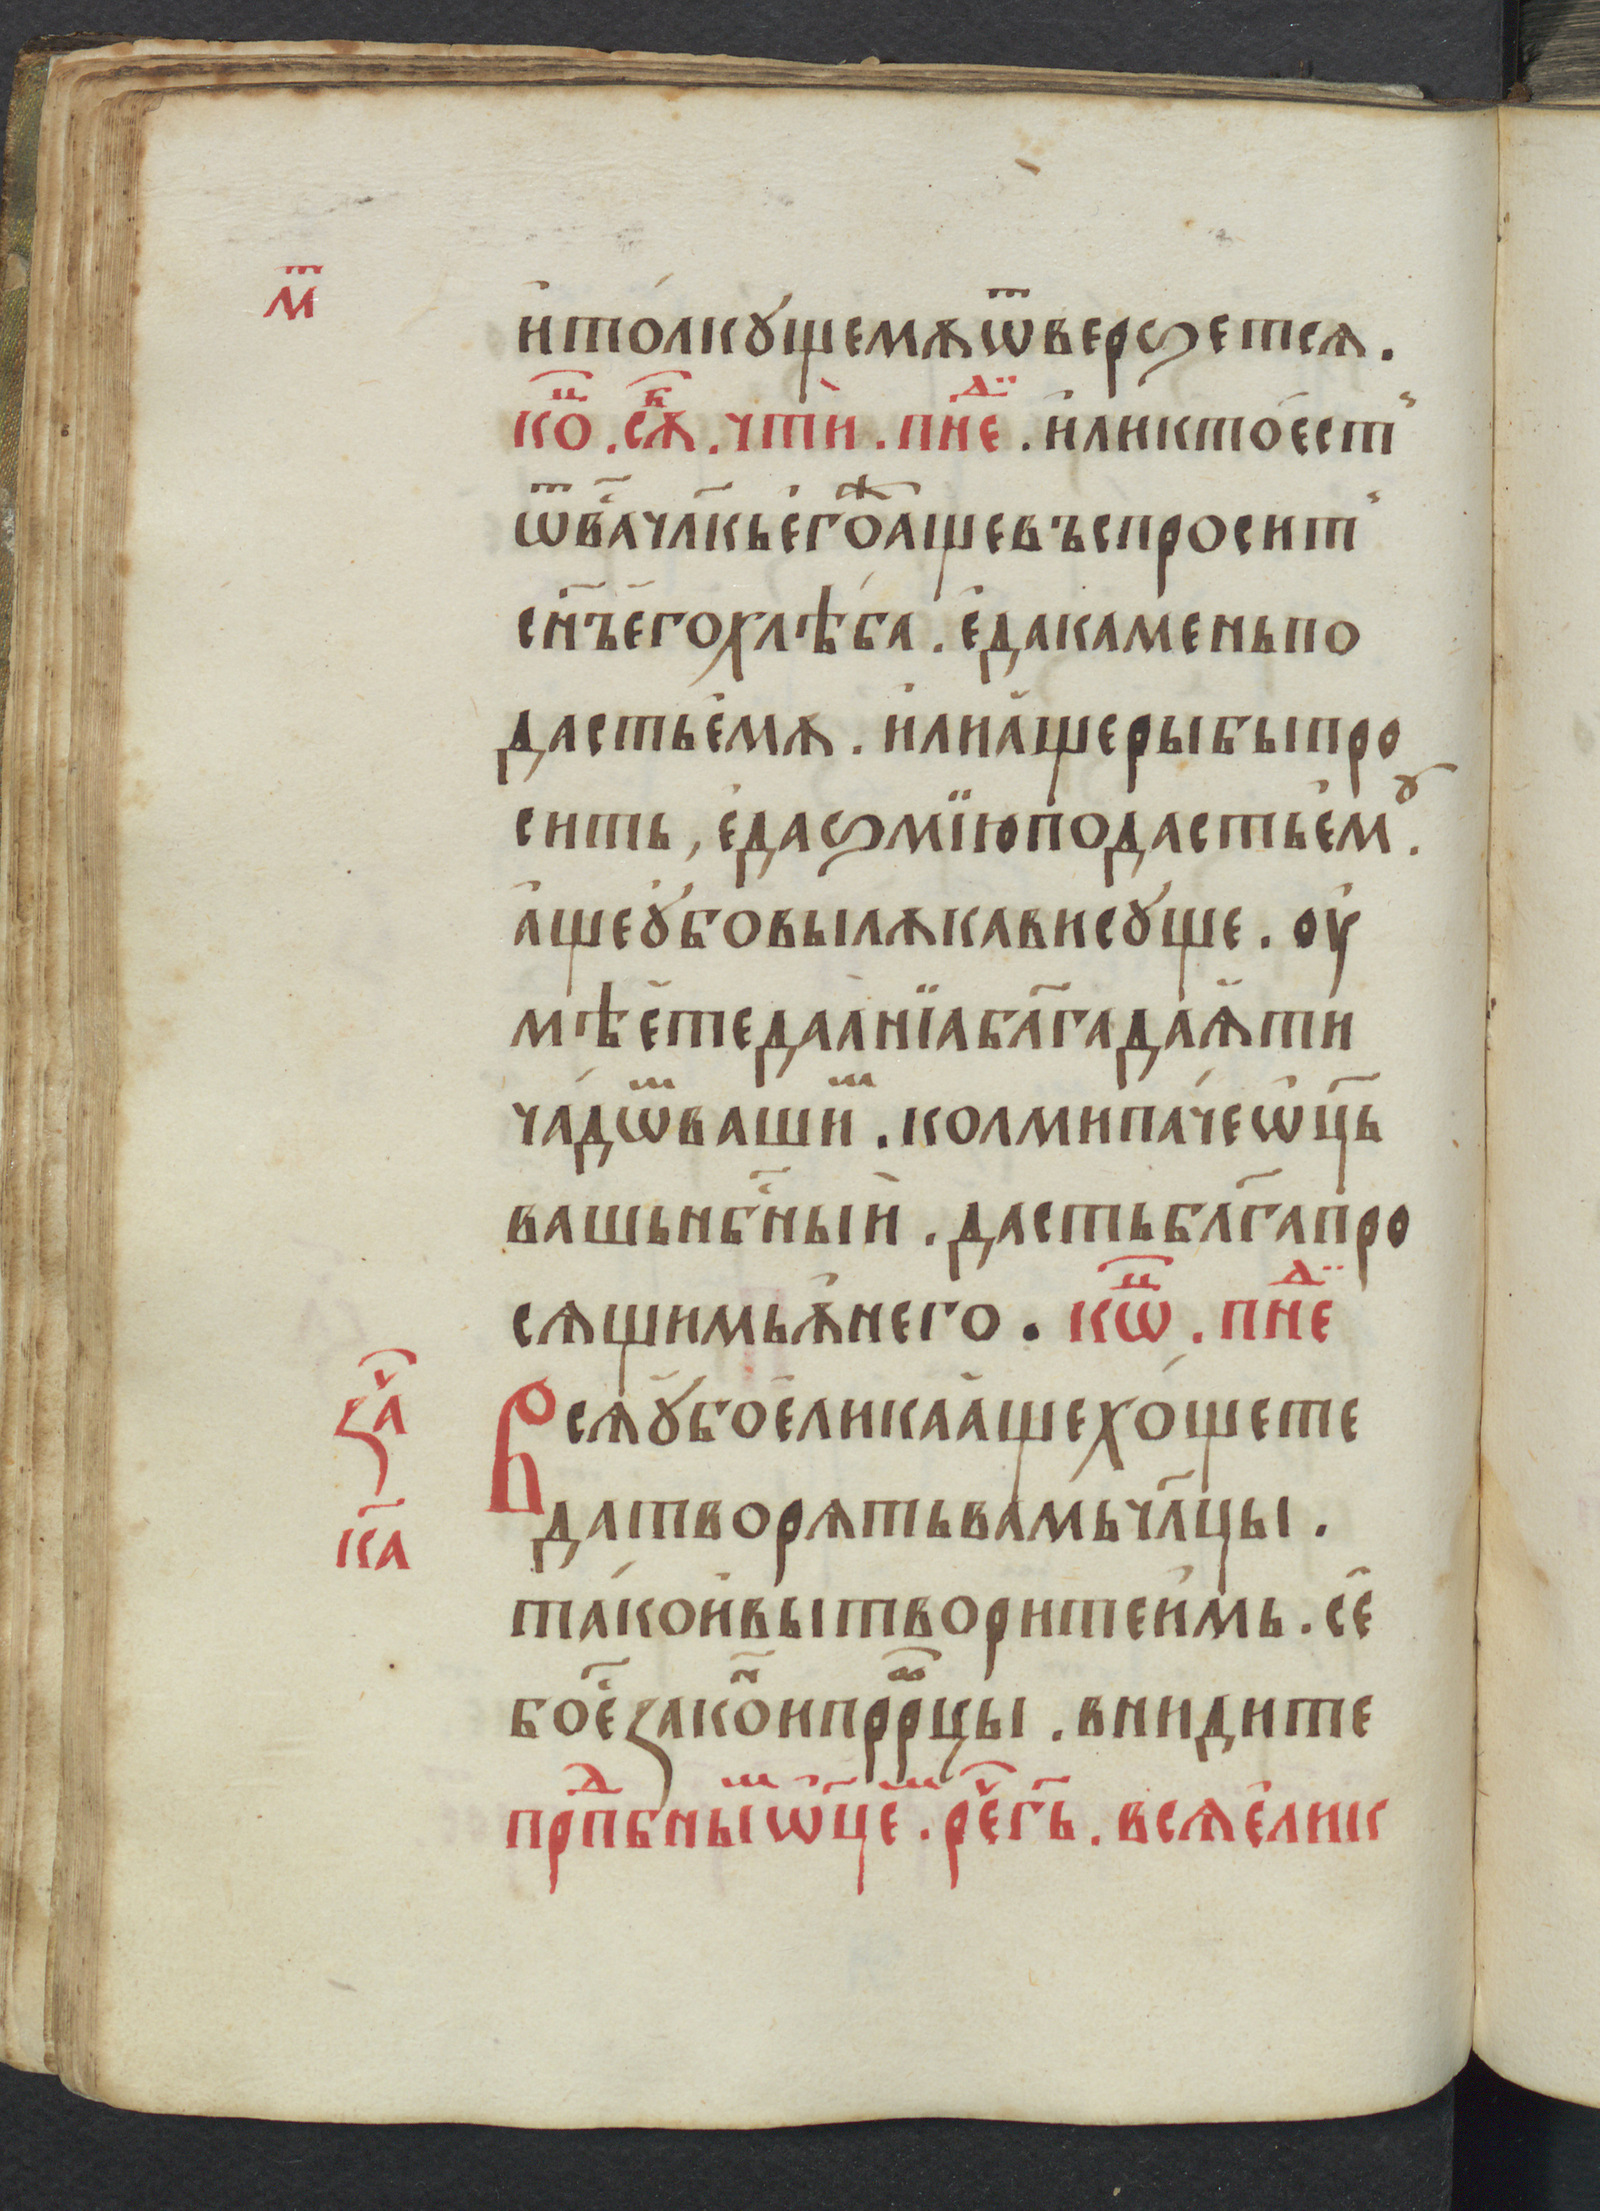 м҃т
и҆ толкꙋ́щемѫ ѿверѕетсѧ.
ко҃ц. сѫ҃б. чтѝ. пн҃е д҃. и҆ли кто́ е҆ст
ѿ ва҃ члк҃ь е҆го҃ж аще въспросит
сн҃ъ е҆го хлѣ́ба. е҆да камень по
дасть е҆мѫ. и҆ли а҆ще рыбы про
сить, е҆да ѕмїю подасть е҆мꙋ.
а҆ще ꙋ҆бо вы лѫкави сꙋще. оу҆
мѣе҆те даанїа бл҃га даѫ҆ти
ча́дѡм ваши҃м. колми па́че ѡц҃ь
вашь нбⷭ҇ный. дасть бл҃га про
сѧщимь ѫ҆ него. кѡ҃ц. пн҃е д҃
Всѧ ꙋ҆бо е҆лика а҆ще хо́щете
за҃ч
да творѧть вамь чл҃цы.
к҃а
та́ко и҆ вы творите и҆мь. се҆
бо е҆с҃ зако҃н и пррⷪ҇цы. внидите
прпⷣбны҃м ѡц҃е҃м. реⷱ҇ г҃ь. всѧ е҆лик